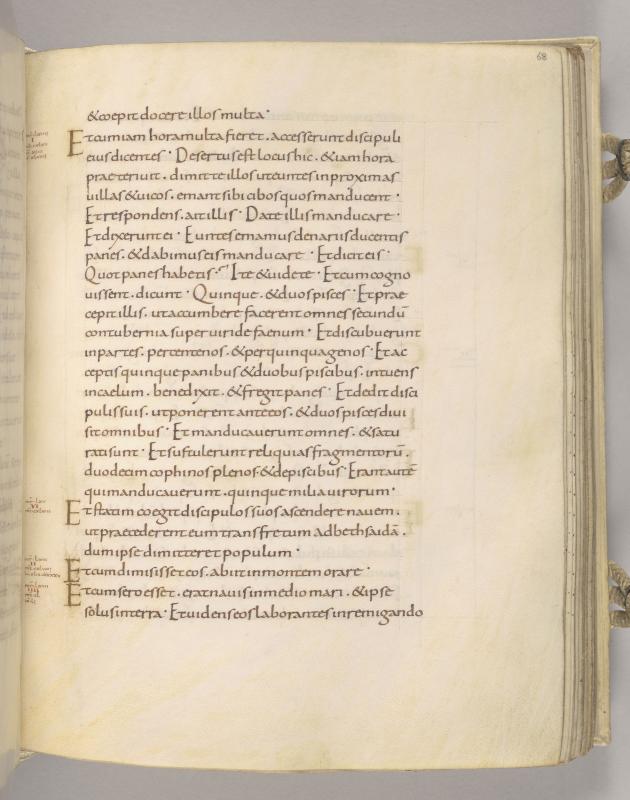 68
&coepit docere illos multa ·
Et cum iam hora multa fieret . accesserunt discipuli
eius dicentes · Desertus est locus hic . & iam hora
praeteriuit . dimitte illos ut euntes in proximas
uillas & uicos . emant sibi cibos quos manducent ·
Et respondens . ait illis · Date illis manducare ·
Et dixerunt ei · Euntes emamus denariis ducentis
panes . & dabimus eis manducare · Et dicit eis ·
Quot panes habetis · Ite & uidete · Et cum cogno
uissent . dicunt · Quinque . & duos pisces · Et prae
cepit illis . ut accumbere facerent omnes secundū
contubernia super uiride faenum · Et discubuerunt
in partes . per centenos . & per quinquagenos · Et ac
ceptis quinque panibus & duobus piscibus . intuens
in caelum . benedixit . & fregit panes · Et dedit disci
pulis suis . ut ponerent ante eos . & duos pisces diui
sit omnibus · Et manducauerunt omnes . & satu
rati sunt · Et sustulerunt reliquias fragmentorū .
duodecim cophinos plenos · & de piscibus · Erant autē
qui manducauerunt . quinque milia uirorum ·
Et statim coegit discipulos suos ascendere nauem .
ut praecederent eum trans fretum ad bethsaidā .
dum ipse dimitteret populum ·
Et cum dimisisset eos . abiit in montem orare ·
Et cum sero esset . erat nauis in medio mari . & ipse
solus in terra · Et uidens eos laborantes in remigando